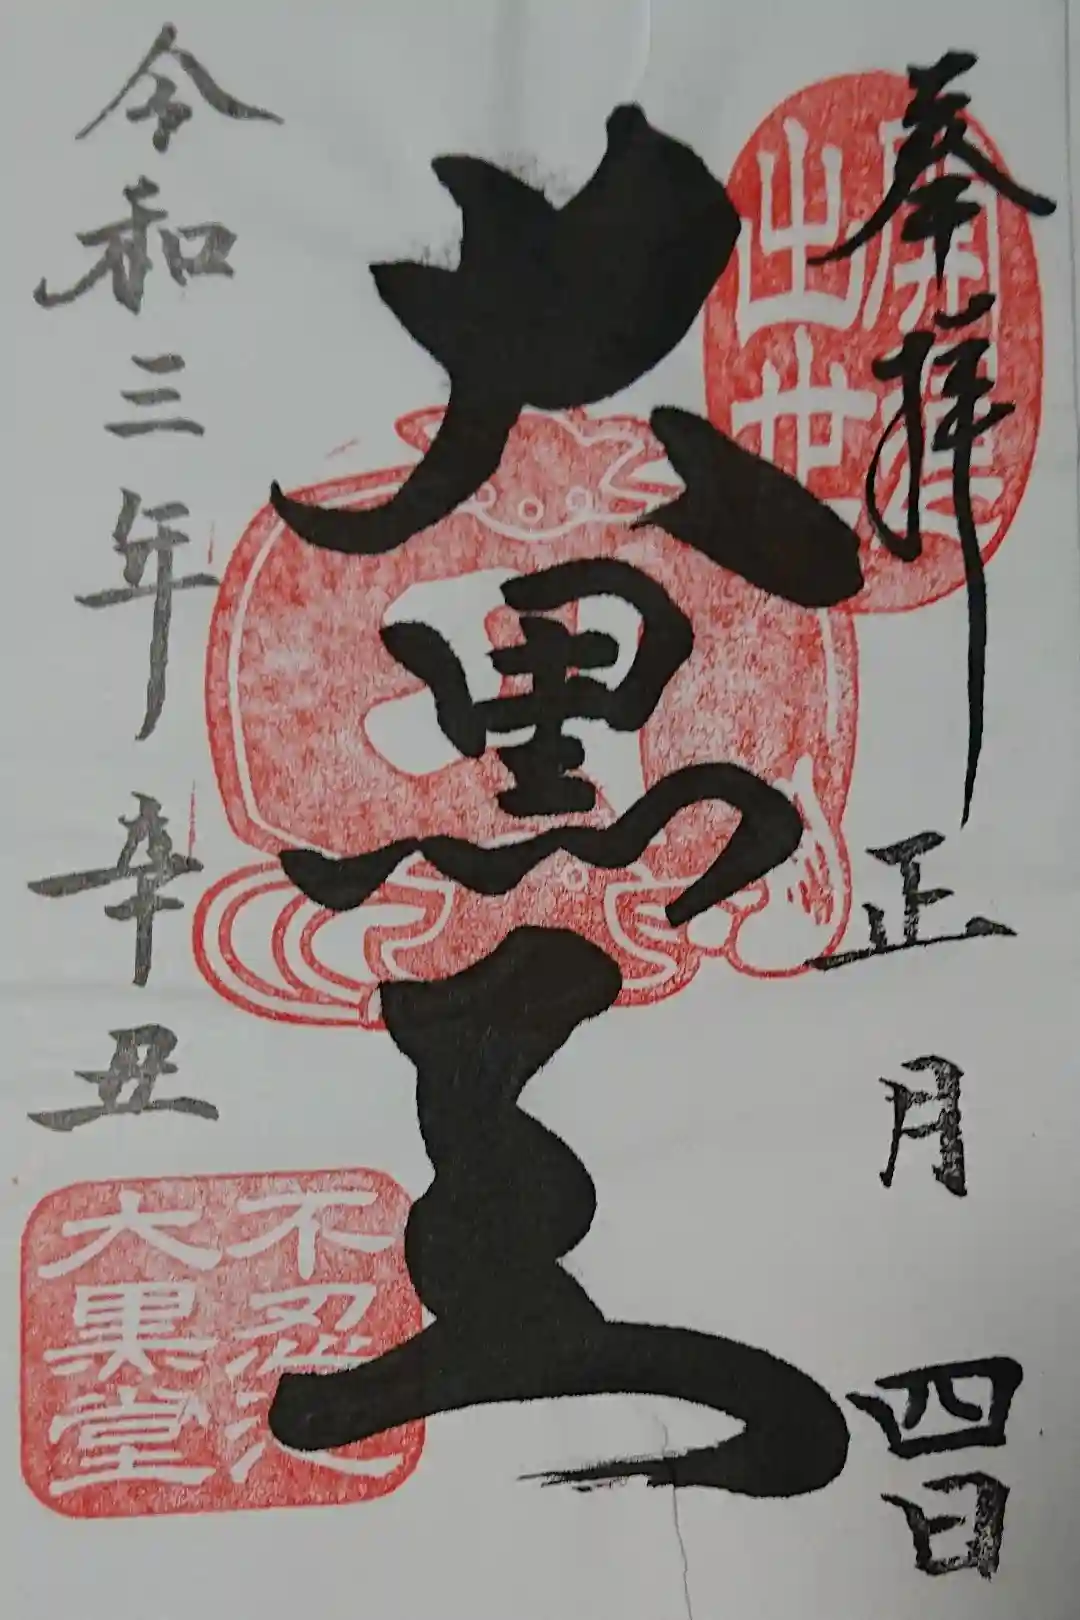 奉拝
正月四日
開運
出世
大黒天
令和三年辛丑
不忍池
大黒堂